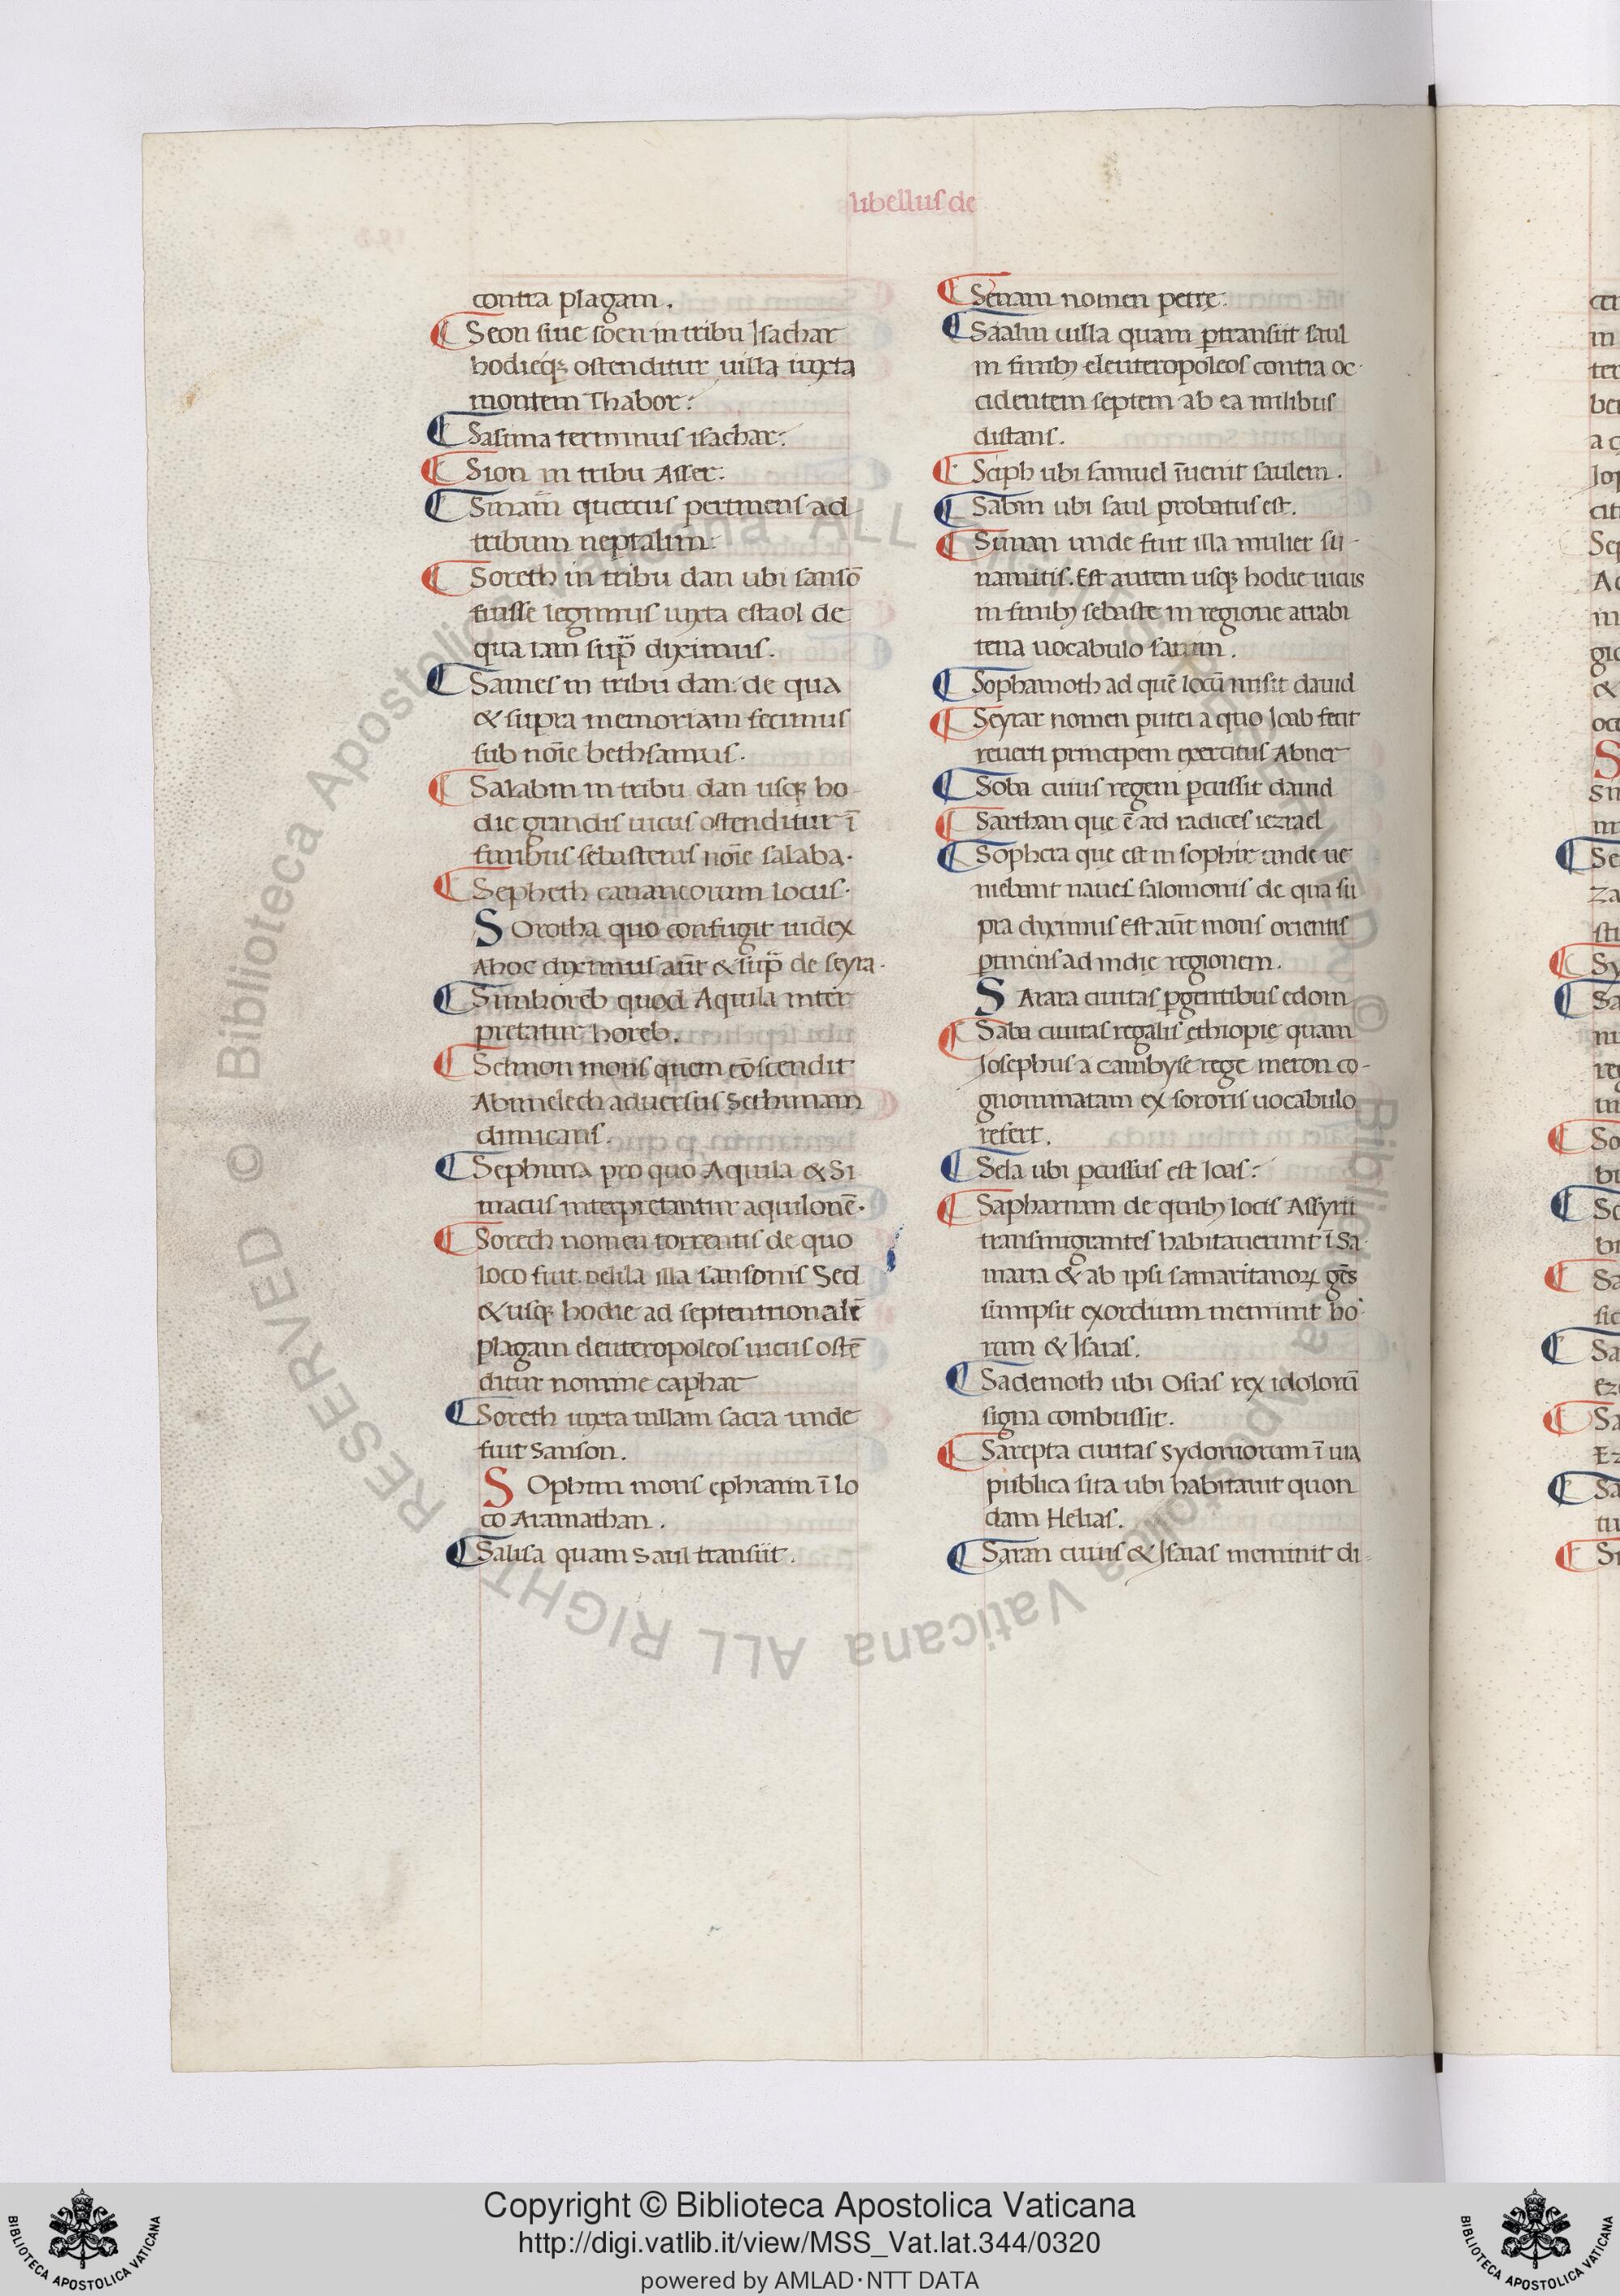 libellus de
contra plagam.
Seon siue soen in tribu Isachar
hodieq; ostenditur uilla iuxta
montem Thabor:
Sasima terminus isachar:
Sion in tribu Asser:
Sinam quercus pertinens ad
tribum neptalim:
Soreth in tribu dan ubi sansō
fuisse legimus iuxta estaol de
qua iam sup̄ diximus.
Sames in tribu dan. de qua
& supra memoriam fecimus
sub nōie bethsamus.
Salabin in tribu dan usq; ho
die grandis uicus ostenditur ī
finibus sebastenis nōie salaba.
Sepheth cananeorum locus.
SOrotha quo confugit iudex
Ahoc diximus aūt & sup̄ de seyra.
Simhoreb quod Aquila inter
pretatur horeb.
Selmon mons quem cōscendit
Abimelech aduersus Sethimam
dimicans.
Sephina pro quo Aquila & Si
macus interpretantur aquilonē.
Sorech nomen torrentis de quo
loco fuit Delila illa sansonis Sed
& usq; hodie ad septentrionalē
plagam eleuteropoleos uicus ostē
ditur nomine caphar
Soreth iuxta uillam sacra unde
fuit Sanson.
SOphim mons ephraim ī lo
co Aramathan.
Salisa quam Saul transiit.
Senam nomen petre:
Saalin uilla quam ptransiit saul
in finib; eleuteropoleos contra oc
cidentem septem ab ea milibus
distans.
Sciph ubi samuel īuenit saulem.
Sabin ubi saul probatus est.
Sunan unde fuit illa mulier su-
namitis. Est autem usq; hodie uicus
in finib; sebaste in regione atrabi
tena uocabulo sanim.
Sophamoth ad quē locū misit dauid
Seyrar nomen putei a quo Joab fecit
reuerti principem exercitus Abner
Soba cuius regem pcussit dauid
Sarthan que ē ad radices iezrael
Sophera que est in sophir unde ue
niebant naues salomonis de qua su
pra diximus Est aūt mons orientis
ptinens ad indie regionem.
SArara ciuitas pgentibus edom
Saba ciuitas regalis ethiopie quam
Josephus a cambyse rege meron co-
gnominatam ex sororis uocabulo
refert.
Sela ubi pcussus est Joas:
Sapharuam de quib; locis Assyrii
transmigrantes habitauerunt ī Sa
maria & ab ipsi samaritanoꝝ gēs
sumpsit exordium meminit ho
rum & Isaias.
Sademoth ubi Osias rex idolorū
signa combussit.
Sarepta ciuitas Sydoniorum ī uia
publica sita ubi habitauit quon
dam Helias.
Saran cuius & Isaias meminit di-
Copyright © Biblioteca Apostolica Vaticana
http://digi.vatlib.it/view/MSS_Vat.lat.344/0320
powered by AMLAD·NTT DATA
BIBLIOTECA APOSTOLICA VATICANA
BIBLIOTECA APOSTOLICA VATICANA